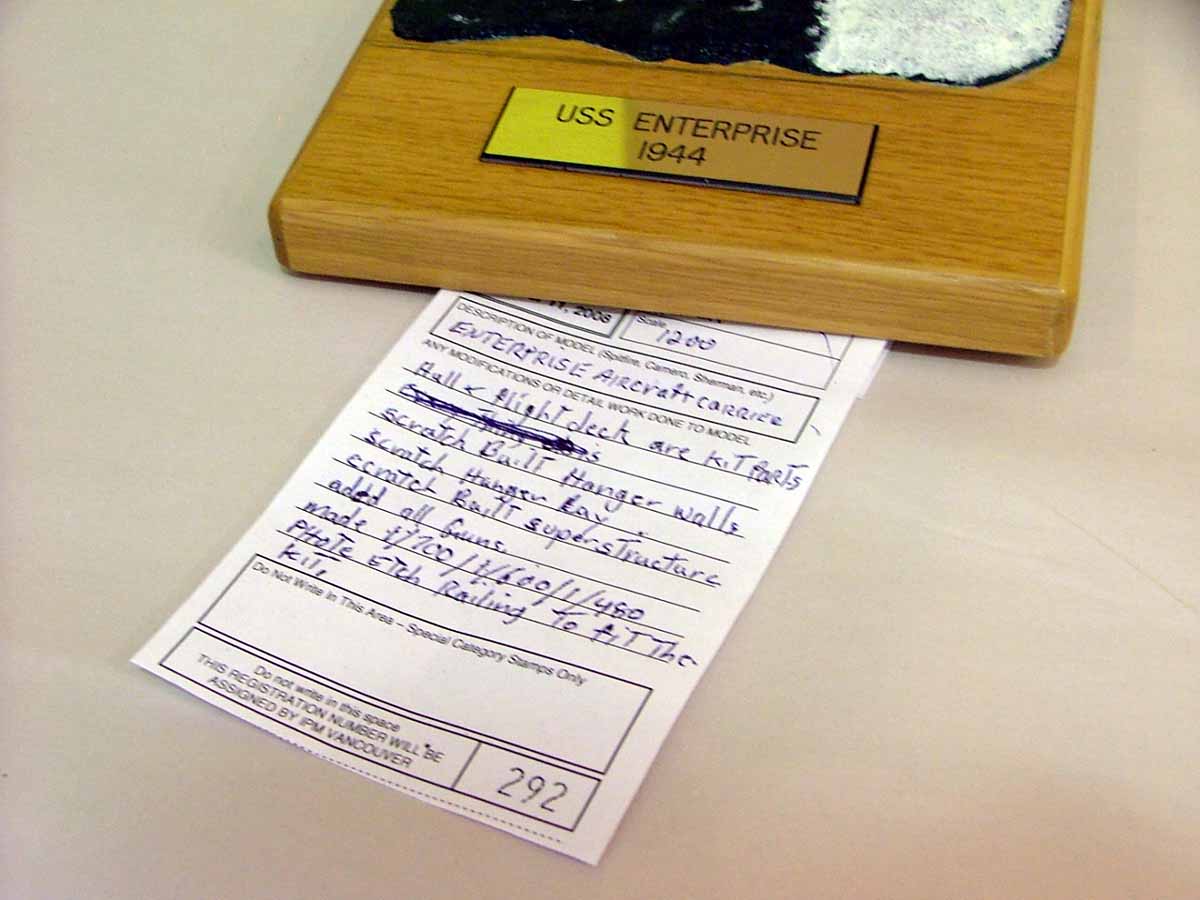 USS ENTERPRISE
1944
, 2008
Scale
1200
DESCRIPTION OF MODEL (Spitfire, Camero, Sherman, etc.)
ENTERPRISE AIrcraft CARRIER
ANY MODIFICATIONS OR DETAIL WORK DONE TO MODEL
Hull & flight deck are KiT PARTS
scratch BuilT Hanger walls
scratch Hanger Bay.
scratch BuilT superstructure
added all Guns.
made 1/700/1/600/1/480
PHoTe ETch Railing To fiT The
KiT.
Do Not Write In This Area – Special Category Stamps Only
Do not write in this space
THIS REGISTRATION NUMBER WILL BE
ASSIGNED BY IPM VANCOUVER
292